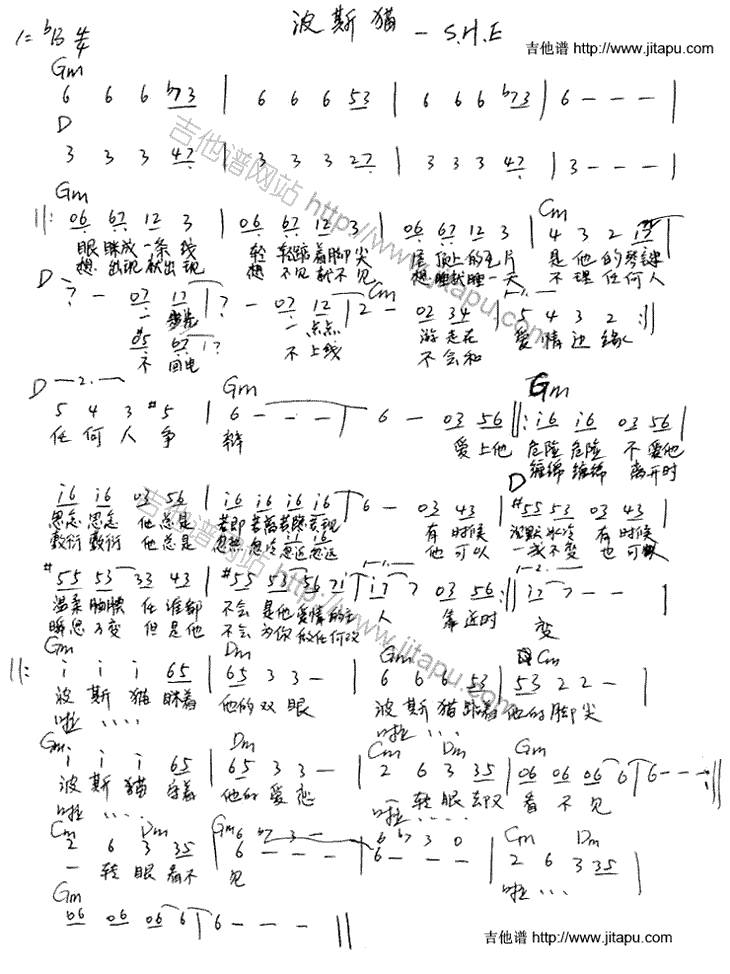 波斯猫 — S.H.E
吉他谱 http://www.jitapu.com
1=ᵇB 4/4
Gm
6 6 6 ᵇ73 | 6 6 6 53 | 6 6 6 ᵇ73 | 6 - - - |
D
3 3 3 47 | 3 3 3 27 | 3 3 3 47 | 3 - - - |
Gm Cm
||: 06 67 12 3 | 06 67 12 3 | 06 67 12 3 | 4 3 2
眼眯成一条线 轻轻踮着脚尖 屋顶上的毛片 是他的琴键
想出现就出现 想不见就不见 想睡就睡一天 不理任何人
D Cm 1.
- 07 12 | - 07 12 | 2 - 02 34 | 5 4 3 2 :||
一步步 一点点 游走在 爱情边缘
#05 67
不回电 不上线 不会和
D 2. Gm Gm
5 4 3 #5 | 6 - - - | 6 - 03 56 ||: i6 i6 03 56 |
任何人争 辩 爱上他 危险危险 不爱他
缠绵缠绵 离开时
D
i6 i6 03 56 | i6 i6 i6 i6 | 6 - 03 43 | #55 53 03 43 |
思念思念 他总是 若即若离若隐若现 有时候 沉默冰冷 有时候
敷衍敷衍 他总是 忽热忽冷忽近忽远 他可以 一成不变 也可以
1. 2.
#55 53 33 43 | #55 53 56 7i | i7 7 03 56 :|| i7 7 - - |
温柔腼腆 任谁都 不会是他爱情的主 人 靠近时 变
瞬息万变 但是他 不会为你做任何改
Gm Dm Gm Cm
||: i i i 65 | 65 3 3 - | 6 6 6 53 | 53 2 2 - |
波斯猫眯着 他的双眼 波斯猫踮着 他的脚尖
啦 . . . . 啦 . . . .
Gm Dm Cm Dm Gm
i i i 65 | 65 3 3 - | 2 6 3 35 | 06 06 06 6 | 6 - - - :||
波斯猫守着 他的爱恋 一转眼却又 看不见
啦 . . . . 啦 . . . .
Cm Dm Gm Cm Dm
2 6 3 35 | 6 ᵇ7 3 - | 6 ᵇ7 3 0 | 2 6 3 35 |
6 - - - 6 - - -
一转眼看不 见 啦 . . .
Gm
06 06 06 6 | 6 - - - ||
吉他谱 http://www.jitapu.com
吉他谱网站 http://www.jitapu.com
吉他谱网站 http://www.jitapu.com